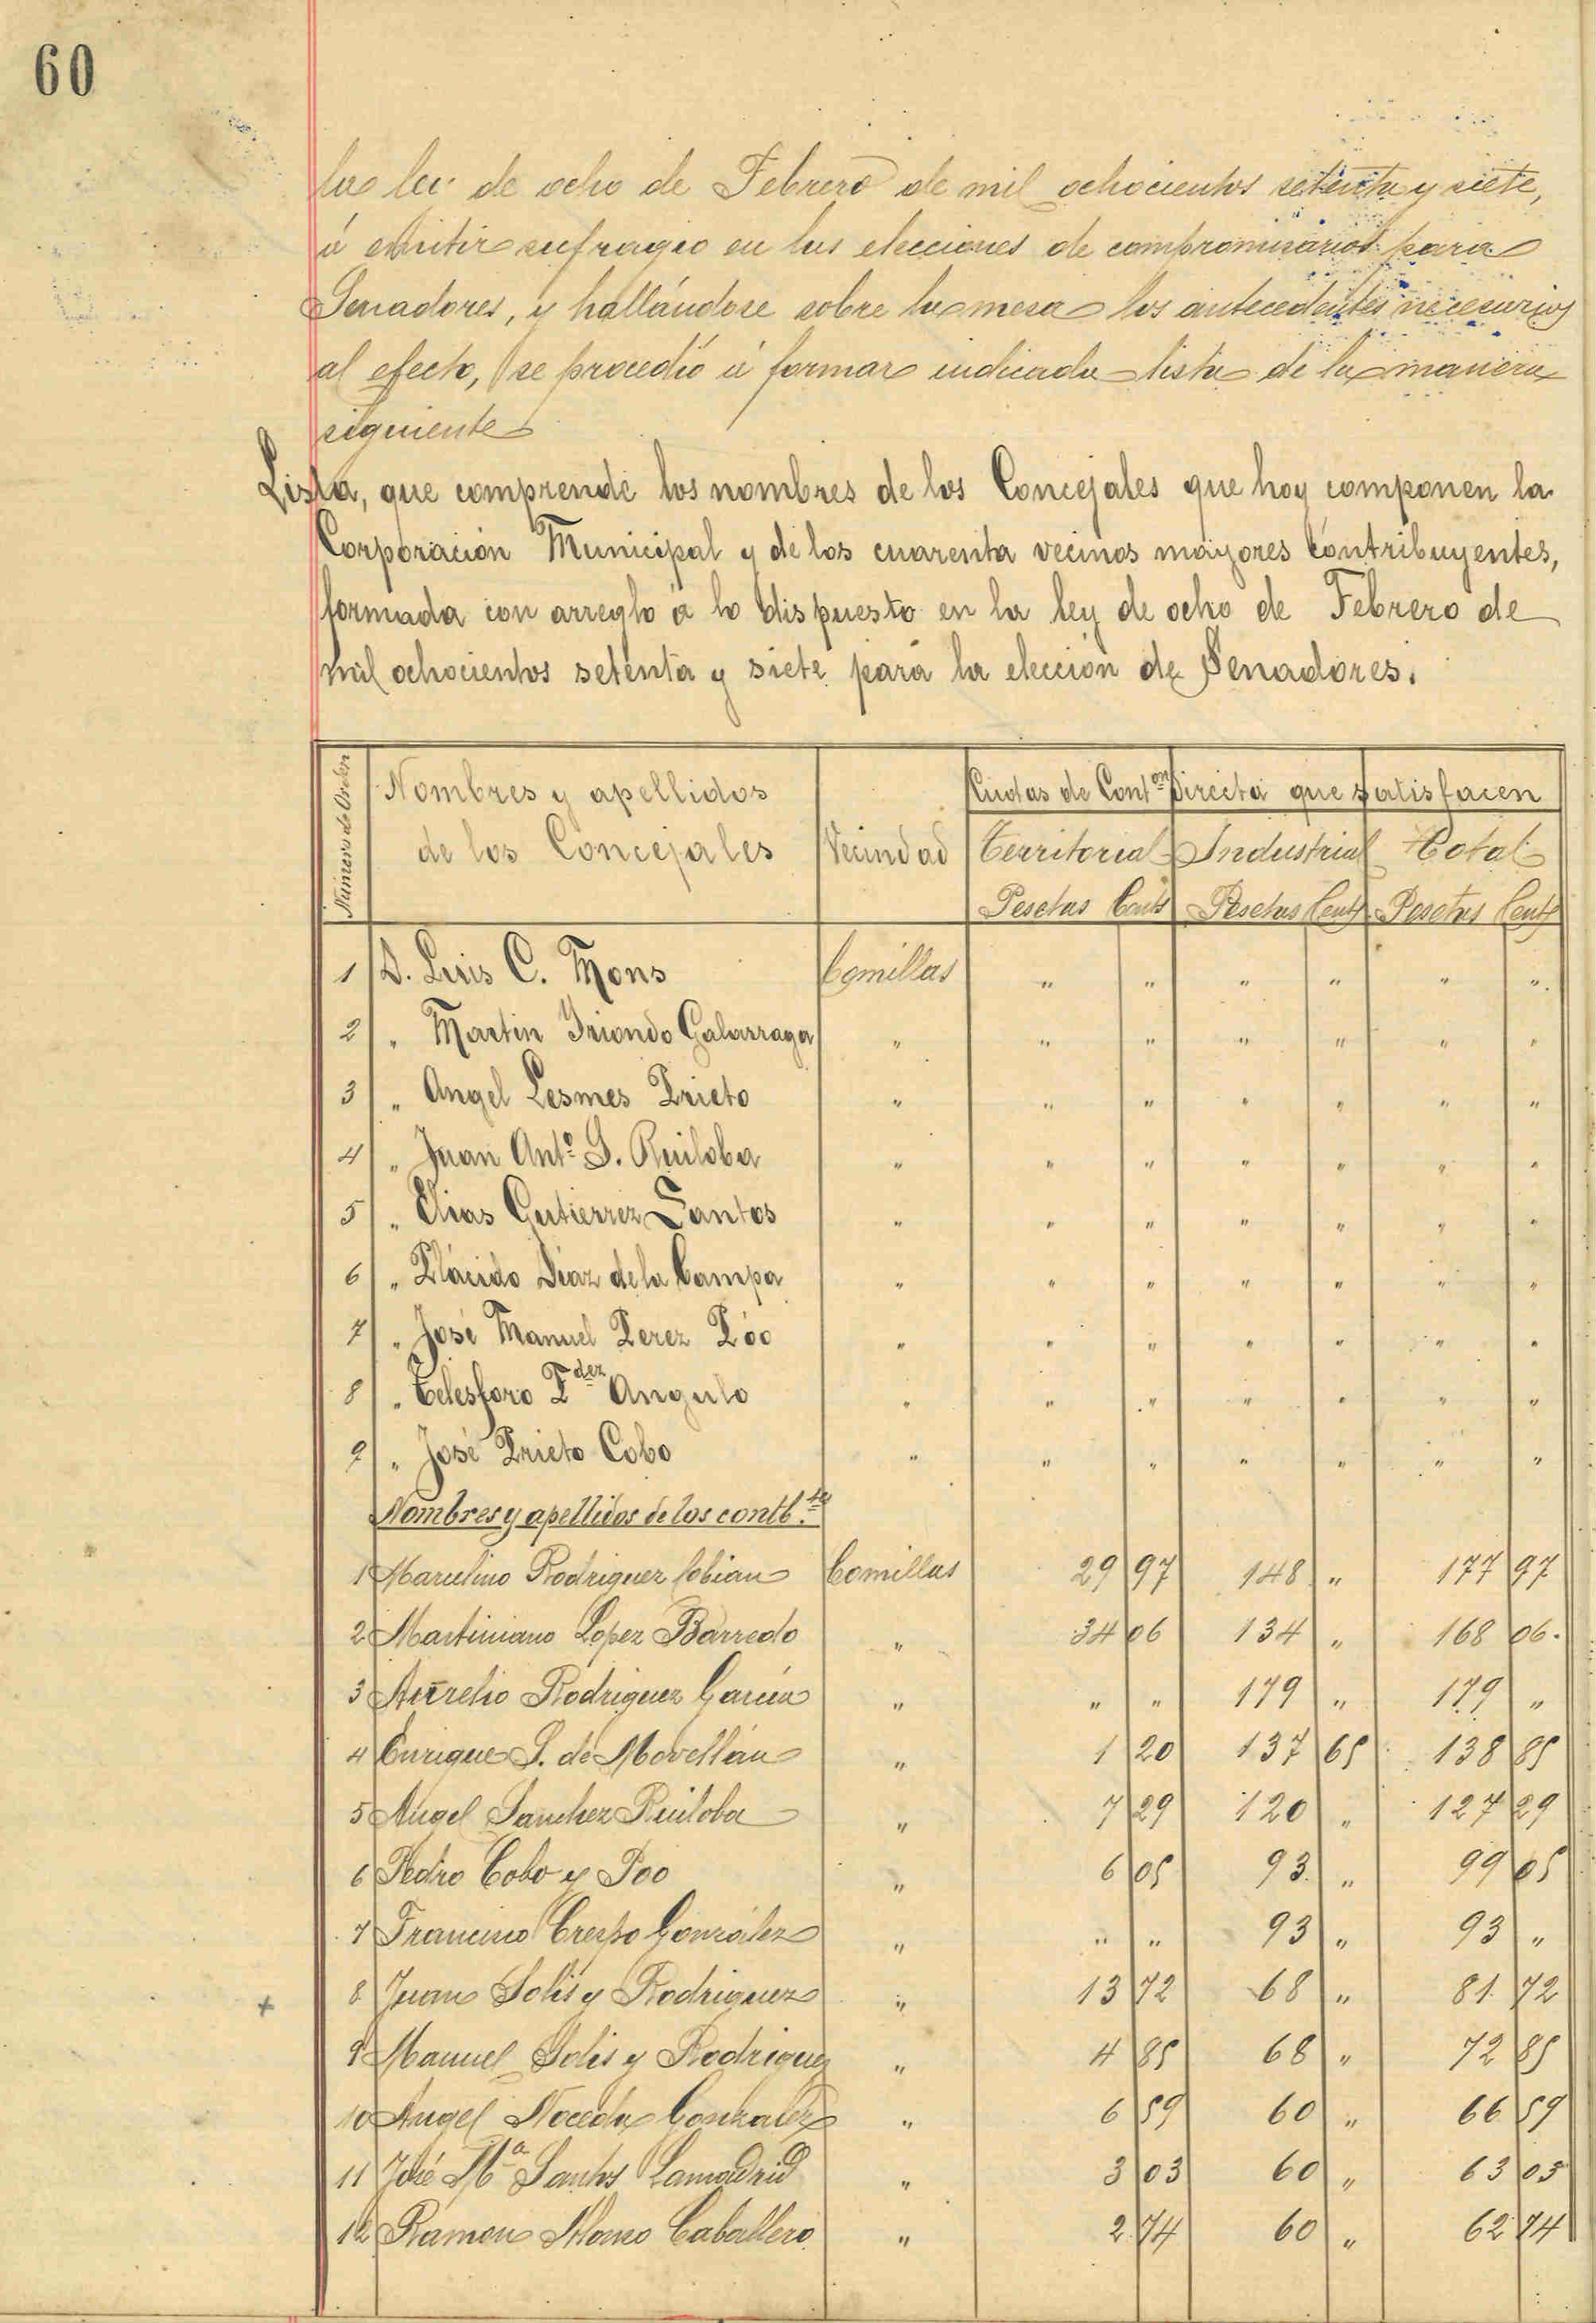 60
la ley de ocho de Febrero de mil ochocientos setenta y siete,
á emitir sufragio en las elecciones de compromisarios para
Senadores, y hallándose sobre la mesa los antecedentes necesarios
al efecto, se procedió á formar indicada lista de la manera
siguiente
Lista, que comprende los nombres de los Concejales que hoy componen la
Corporación Municipal y de los cuarenta vecinos mayores contribuyentes,
formada con arreglo á lo dispuesto en la ley de ocho de Febrero de
mil ochocientos setenta y siete para la elección de Senadores.
Número de Orden
Nombres y apellidos
de los Concejales
Vecindad
Cuotas de Cont.on Directa que satisfacen
Territorial Industrial Total
Pesetas Cents Pesetas Cents Pesetas Cents
1 D. Luis C. Mons Comillas " " " " " "
2 " Martin Iriondo Galarraga " " " " " " "
3 " Angel Lesmes Prieto " " " " " " "
4 " Juan Ant.o S. Ruiloba " " " " " " "
5 " Elias Gutierrez Santos " " " " " " "
6 " Plácido Diaz de la Campa " " " " " " "
7 " José Manuel Perez Póo " " " " " " "
8 " Telesforo F.dez Angulo " " " " " " "
9 " José Prieto Cobo " " " " " " "
Nombres y apellidos de los contb.tes
1 Marcelino Rodriguez Cobian Comillas 29 97 148 " 177 97
2 Martiniano Lopez Barredo " 34 06 134 " 168 06.
3 Aurelio Rodriguez García " " " 179 " 179 "
4 Enrique S. de Movellán " 1 20 137 65 138 85
5 Angel Sanchez Ruiloba " 7 29 120 " 127 29
6 Pedro Cobo y Poo " 6 05 93 " 99 05
7 Francisco Crespo González " " " 93 " 93 "
8 Juan Solis y Rodriguez " 13 72 68 " 81 72
9 Manuel Solis y Rodriguez " 4 85 68 " 72 85
10 Angel Noceda Gonzalez " 6 59 60 " 66 59
11 José M.a Santos Lamadrid " 3 03 60 " 63 03
12 Ramon Alonso Caballero " 2 74 60 " 62 74